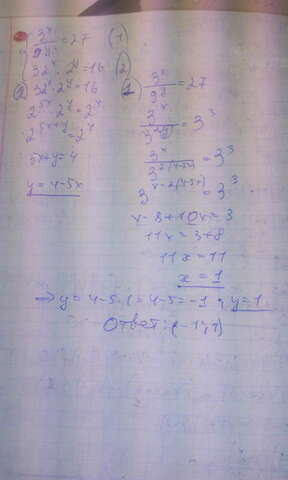 3^x/9^y = 27 (1)
32^x · 2^y = 16 (2)
2) 32^x · 2^y = 16
2^5x · 2^y = 2^4
2^5x+y = 2^4
5x+y = 4
y = 4-5x
1) 3^x/9^y = 27
3^x/3^2y = 3^3
3^x/3^2(4-5x) = 3^3
3^x-2(4-5x) = 3^3
x-8+10x = 3
11x = 3+8
11x = 11
x = 1
⇒ y = 4-5·1 = 4-5 = -1, y = 1
Ответ: (-1; 1)